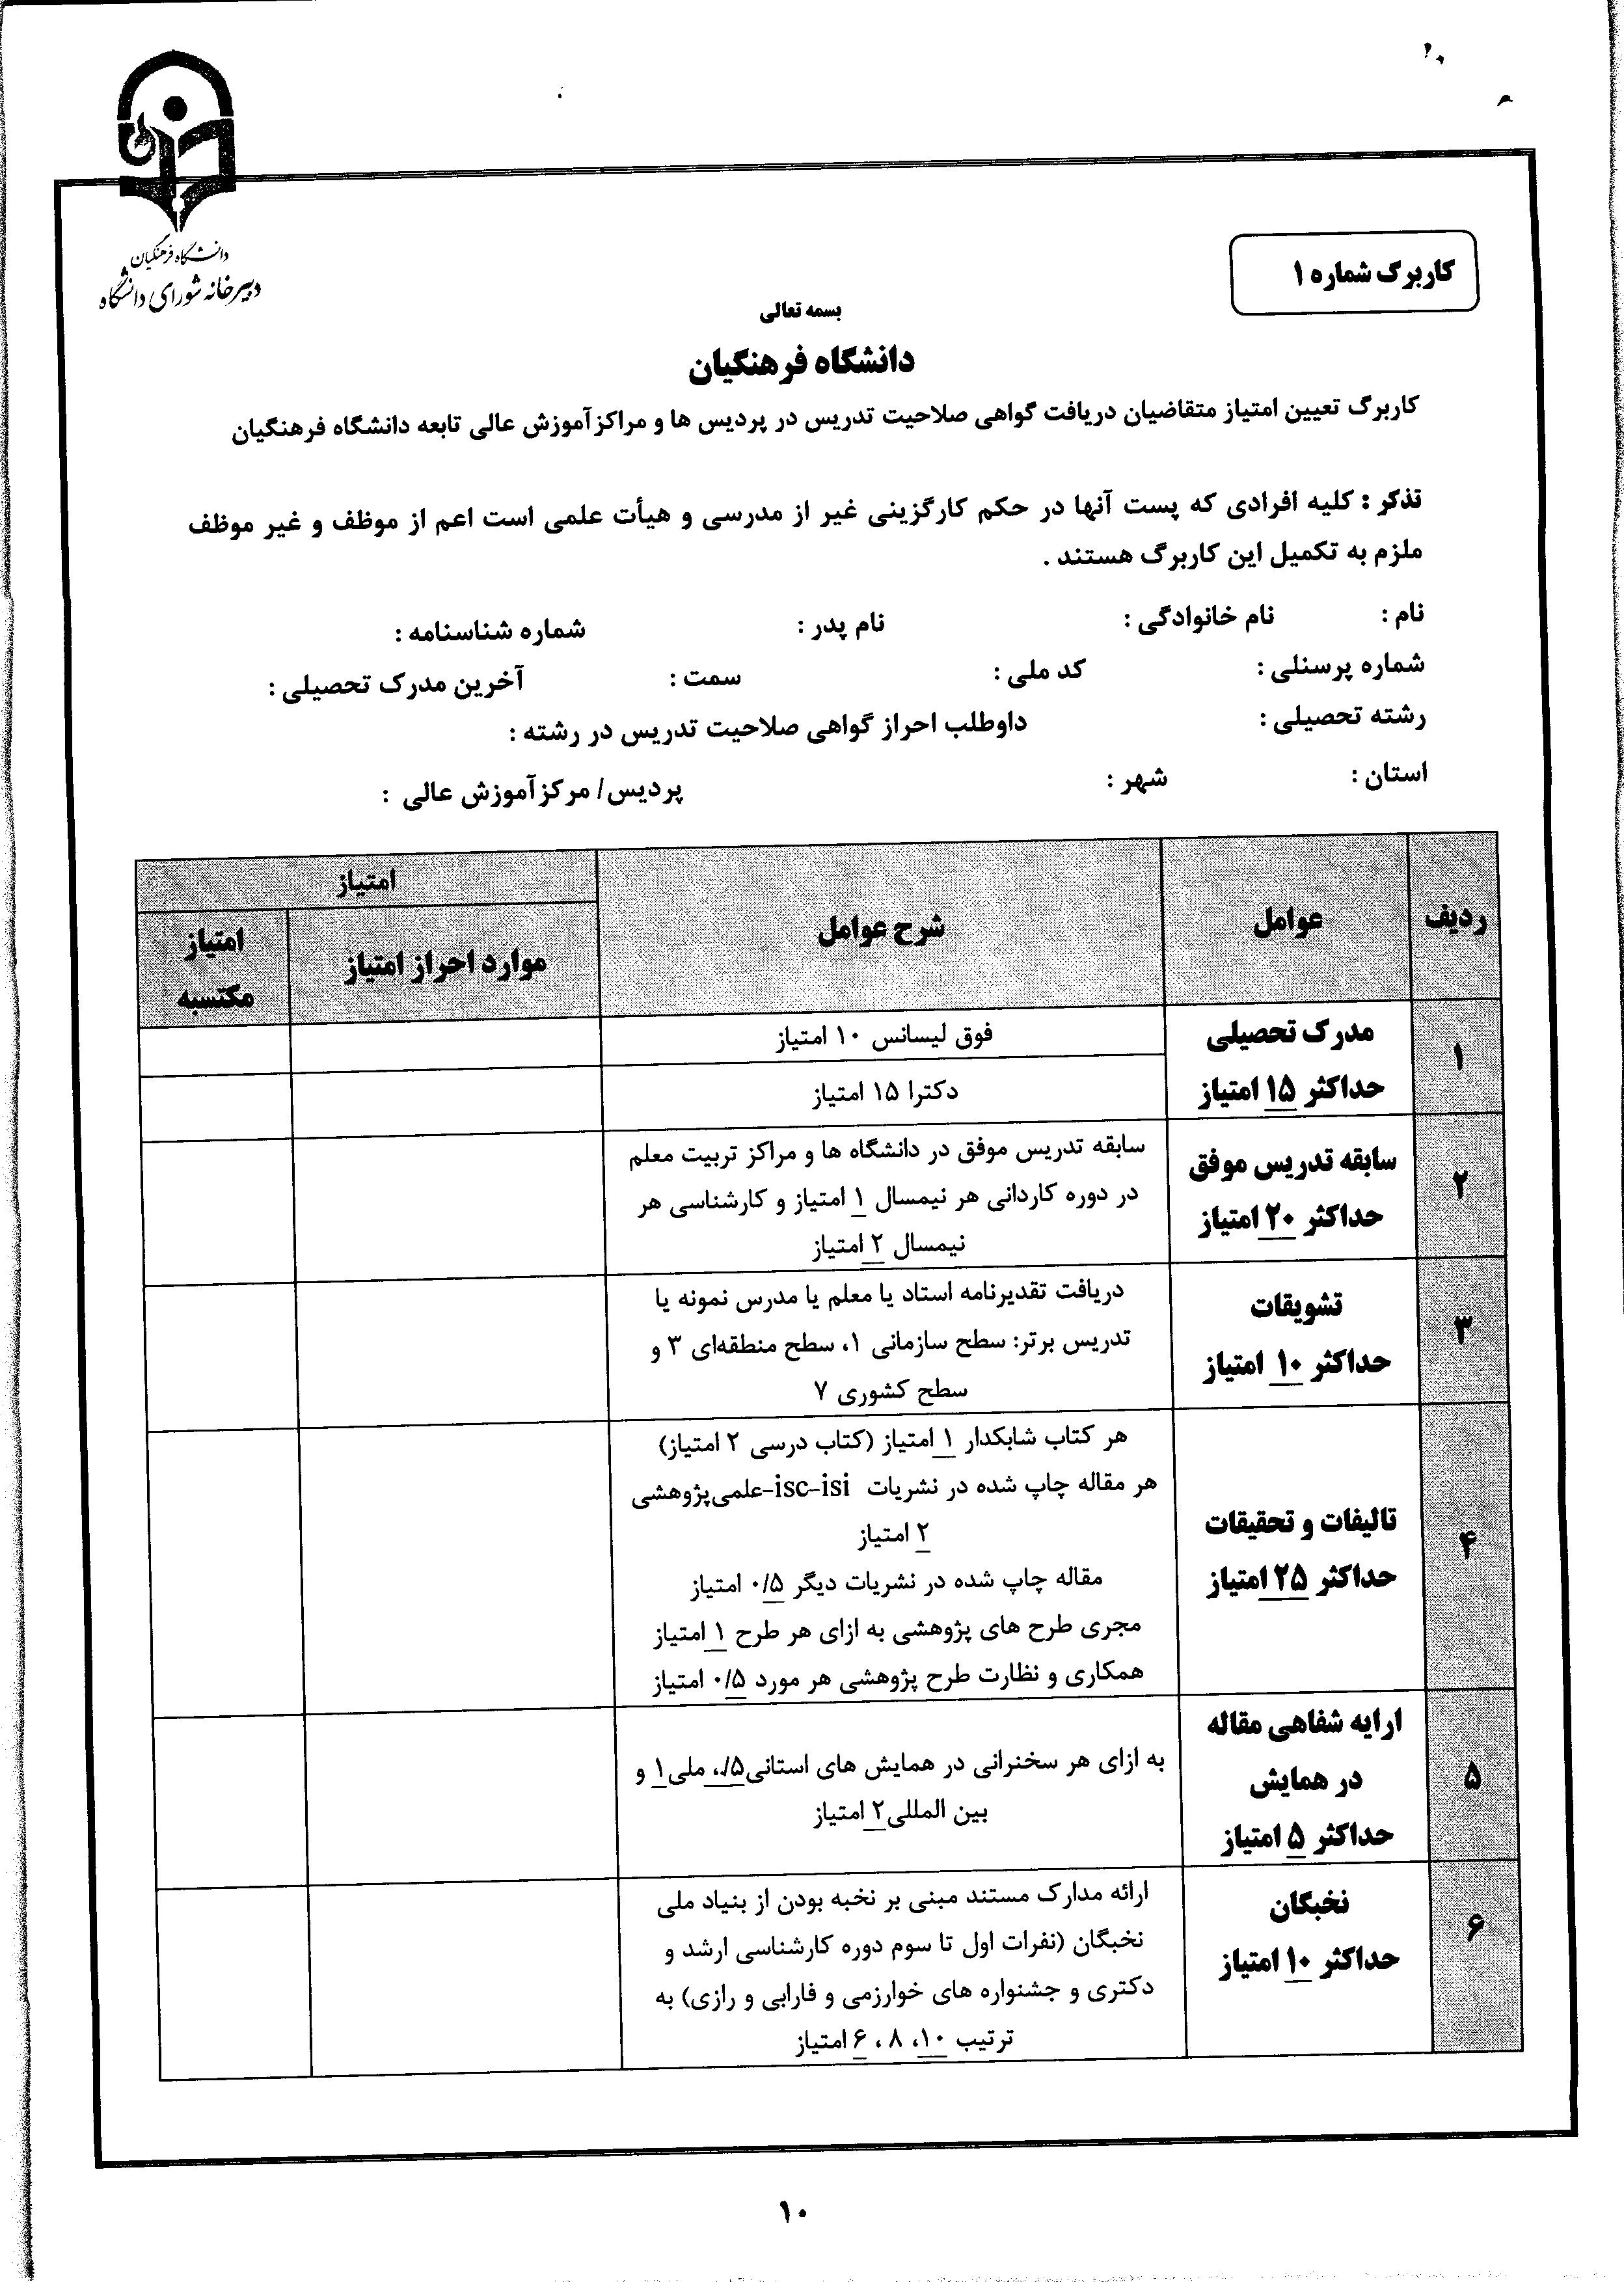 دانشگاه فرهنگیان
دبیرخانه شورای دانشگاه
کاربرگ شماره ۱
بسمه تعالی
دانشگاه فرهنگیان
کاربرگ تعیین امتیاز متقاضیان دریافت گواهی صلاحیت تدریس در پردیس ها و مراکز آموزش عالی تابعه دانشگاه فرهنگیان
تذکر : کلیه افرادی که پست آنها در حکم کارگزینی غیر از مدرسی و هیأت علمی است اعم از موظف و غیر موظف
ملزم به تکمیل این کاربرگ هستند .
نام : نام خانوادگی : نام پدر : شماره شناسنامه :
شماره پرسنلی : کد ملی : سمت : آخرین مدرک تحصیلی :
رشته تحصیلی : داوطلب احراز گواهی صلاحیت تدریس در رشته :
استان : شهر : پردیس/ مرکز آموزش عالی :
ردیف
عوامل
شرح عوامل
امتیاز
موارد احراز امتیاز
امتیاز
مکتسبه
۱
مدرک تحصیلی
حداکثر ۱۵ امتیاز
فوق لیسانس ۱۰ امتیاز
دکترا ۱۵ امتیاز
۲
سابقه تدریس موفق
حداکثر ۲۰ امتیاز
سابقه تدریس موفق در دانشگاه ها و مراکز تربیت معلم
در دوره کاردانی هر نیمسال ۱ امتیاز و کارشناسی هر
نیمسال ۲ امتیاز
۳
تشویقات
حداکثر ۱۰ امتیاز
دریافت تقدیرنامه استاد یا معلم یا مدرس نمونه یا
تدریس برتر: سطح سازمانی ۱، سطح منطقه‌ای ۳ و
سطح کشوری ۷
۴
تالیفات و تحقیقات
حداکثر ۲۵ امتیاز
هر کتاب شابکدار ۱ امتیاز (کتاب درسی ۲ امتیاز)
هر مقاله چاپ شده در نشریات isc-isi-علمی‌پژوهشی
۲ امتیاز
مقاله چاپ شده در نشریات دیگر ۰/۵ امتیاز
مجری طرح های پژوهشی به ازای هر طرح ۱ امتیاز
همکاری و نظارت طرح پژوهشی هر مورد ۰/۵ امتیاز
۵
ارایه شفاهی مقاله
در همایش
حداکثر ۵ امتیاز
به ازای هر سخنرانی در همایش های استانی۰/۵، ملی۱ و
بین المللی۲ امتیاز
۶
نخبگان
حداکثر ۱۰ امتیاز
ارائه مدارک مستند مبنی بر نخبه بودن از بنیاد ملی
نخبگان (نفرات اول تا سوم دوره کارشناسی ارشد و
دکتری و جشنواره های خوارزمی و فارابی و رازی) به
ترتیب ۱۰، ۸ ، ۶ امتیاز
۱۰